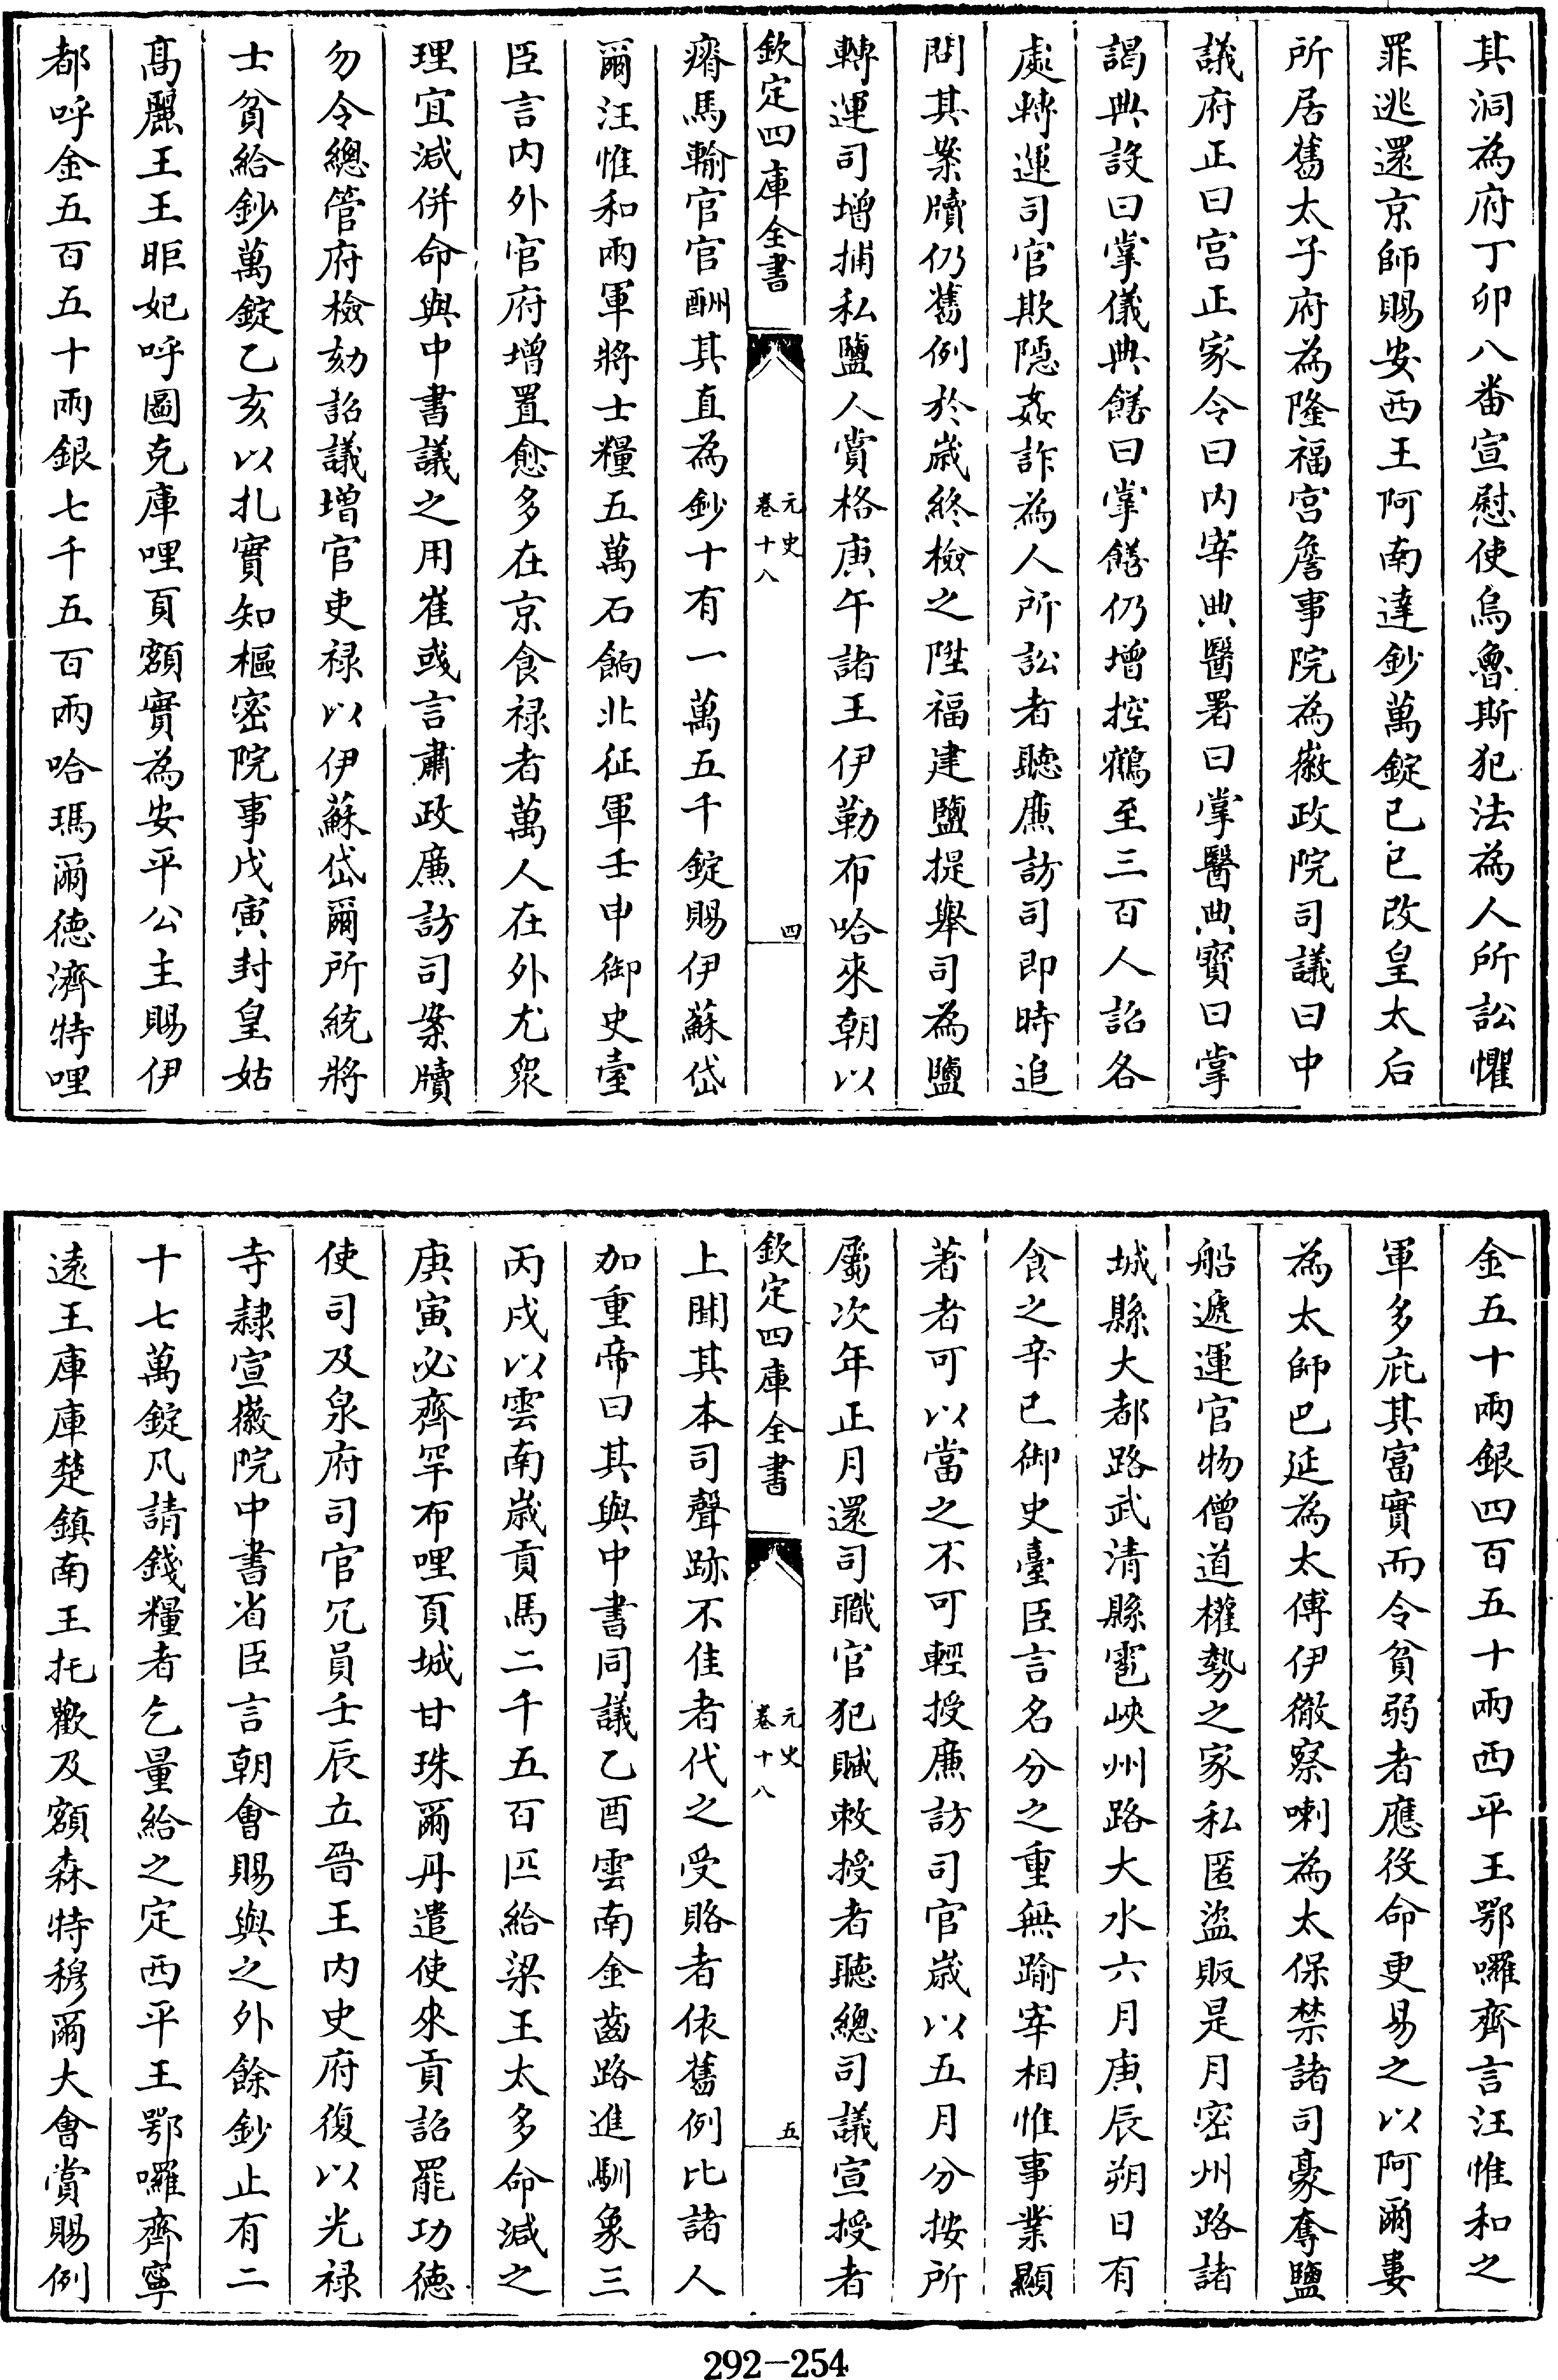 其洞為府丁卯八番宣慰使烏魯斯犯法為人所訟懼
罪逃還京師賜安西王阿南達鈔萬錠己巳改皇太后
所居舊太子府為隆福宮詹事院為徽政院司議曰中
議府正曰宮正家令曰内宰典醫署曰掌醫典寶曰掌
謁典設曰掌儀典饍曰掌饍仍增控鶴至三百人詔各
處轉運司官欺隱姦詐為人所訟者聽廉訪司即時追
問其案牘仍舊例於歲終檢之陞福建鹽提舉司為鹽
轉運司增捕私鹽人賞格庚午諸王伊勒布哈來朝以
欽定四庫全書
元史
卷十八
四
瘠馬輸官官酬其直為鈔十有一萬五千錠賜伊蘇岱
爾汪惟和兩軍將士糧五萬石餉北征軍壬申御史臺
臣言内外官府增置愈多在京食祿者萬人在外尤衆
理宜減併命與中書議之用崔彧言肅政廉訪司案牘
勿令總管府檢劾詔議增官吏祿以伊蘇岱爾所統將
士貧給鈔萬錠乙亥以扎實知樞密院事戊寅封皇姑
髙麗王王昛妃呼圖克庫哩頁額實為安平公主賜伊
都呼金五百五十兩銀七千五百兩哈瑪爾德濟特哩
金五十兩銀四百五十兩西平王鄂囉齊言汪惟和之
軍多庇其富實而令貧弱者應役命更易之以阿爾婁
為太師巴延為太傅伊徹察喇為太保禁諸司豪奪鹽
船遞運官物僧道權勢之家私匿盜販是月密州路諸
城縣大都路武清縣雹峽州路大水六月庚辰朔日有
食之辛巳御史臺臣言名分之重無踰宰相惟事業顯
著者可以當之不可輕授廉訪司官歲以五月分按所
屬次年正月還司職官犯贓敕授者聽總司議宣授者
欽定四庫全書
元史
卷十八
五
上聞其本司聲跡不佳者代之受賂者依舊例比諸人
加重帝曰其與中書同議乙酉雲南金齒路進馴象三
丙戌以雲南歲貢馬二千五百匹給梁王太多命減之
庚寅必齊罕布哩頁城甘珠爾丹遣使來貢詔罷功德
使司及泉府司官冗員壬辰立晉王内史府復以光祿
寺隸宣徽院中書省臣言朝會賜與之外餘鈔止有二
十七萬錠凡請錢糧者乞量給之定西平王鄂囉齊寧
遠王庫庫楚鎮南王托歡及額森特穆爾大會賞賜例
292-254